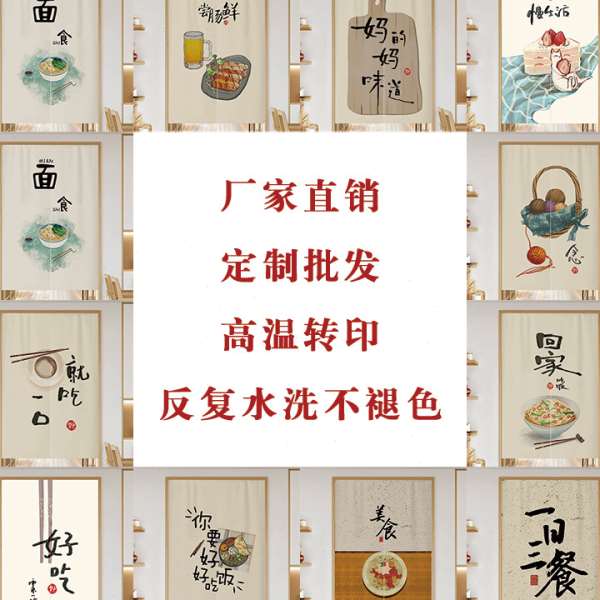 面
食
尝稣鲜
妈的妈
味道
慢生活
面
食
厂家直销
定制批发
高温转印
反复水洗不褪色
念
就吃
一口
回家
饭
好吃
你要好
好吃饭
美食
一日
三餐